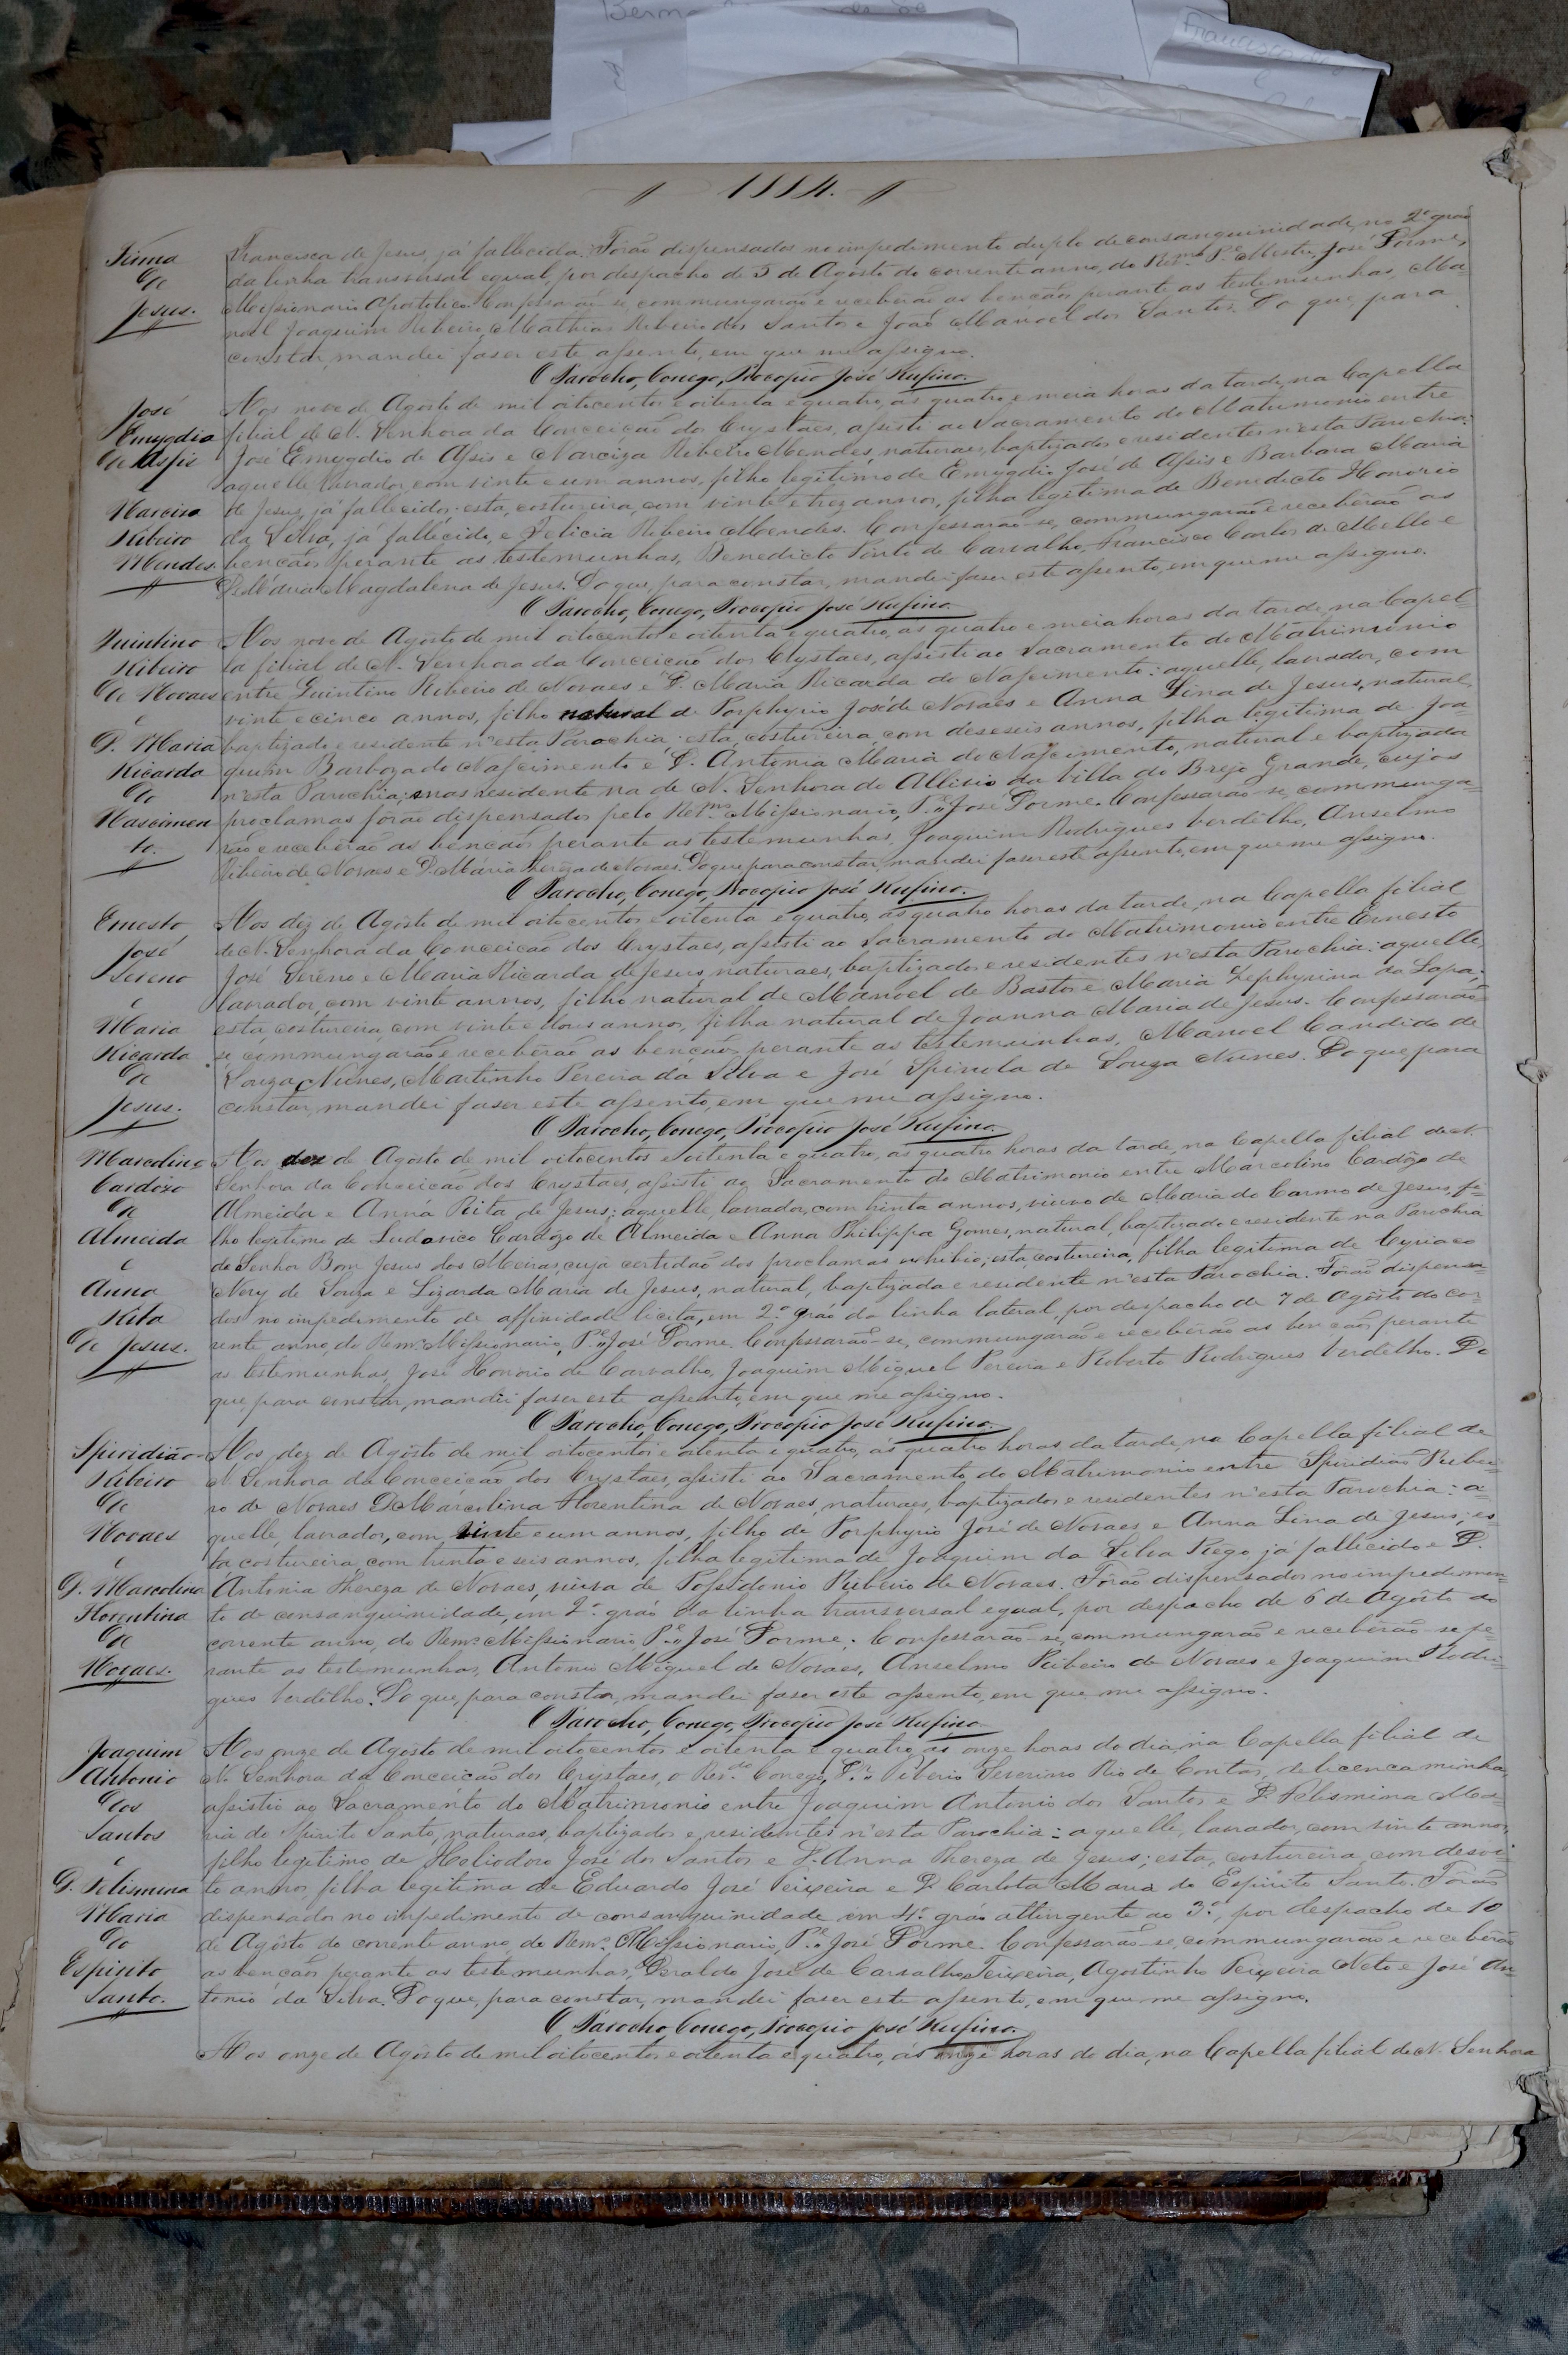 1884.
Firma
de
Jesus.
Francisca de Jesus, já fallecida. Forão dispensados no impedimento duplo de consanguinidade, no 2º grao
da linha transversal egual, por despacho de 5 de Agosto do corrente anno, do Rev.mo P.e Mestre, José Forme,
Missionario Apostolico. Confessarão-se, commungarão e receberão as bençãos perante as testemunhas, Ma-
noel Joaquim Ribeiro, Mathias Ribeiro dos Santos e João Manoel dos Santos. Do que, para
constar, mandei faser este assento, em que me assigno.
O Parocho, Conego, Procopio José Rufino.
José
Emygdio
de Assis
e
Narciza
Ribeiro
Mendes.
Aos nove de Agosto de mil oitocentos e oitenta e quatro, ás quatro e meia horas da tarde, na Capella
filial de N. Senhora da Conceição dos Crystaes, assisti ao Sacramento do Matrimonio entre
José Emygdio de Assis e Narciza Ribeiro Mendes, naturaes, baptizados e residentes n'esta Parochia:
aquelle, lavrador, com vinte e um annos, filho legitimo de Emygdio José de Assis e Barbara Maria
de Jesus, já fallecidos; esta, costureira, com vinte e trez annos, filha legitima de Benedicto Honorio
da Silva, já fallecido, e Felicia Ribeiro Mendes. Confessarão-se, commungarão e receberão as
bençãos perante as testemunhas, Benedicto Pinto de Carvalho, Francisco Carlos de Mello e
D. Maria Magdalena de Jesus. Do que, para constar, mandei faser este assento, em que me assigno.
O Parocho, Conego, Procopio José Rufino.
Quintino
Ribeiro
de Novaes
e
D. Maria
Ricarda
do
Nascimen
to.
Aos nove de Agosto de mil oitocentos e oitenta e quatro, as quatro e meia horas da tarde, na Capel-
la filial de N. Senhora da Conceição dos Crystaes, assisti ao Sacramento do Matrimonio
entre Quintino Ribeiro de Novaes e D. Maria Ricarda do Nascimento: aquelle, lavrador, com
vinte e cinco annos, filho natural de Porphyrio José de Novaes e Anna Lina de Jesus, natural,
baptizado e residente n'esta Parochia; esta, costureira, com deseseis annos, filha legitima de Joa-
quim Barboza do Nascimento e D. Antonia Maria do Nascimento, natural e baptizada
n'esta Parochia; mas residente na de N. Senhora do Allivio da Villa do Brejo Grande, cujos
proclamas fôrão dispensados pelo Rev.mo Missionario, P.e José Forme. Confessarão-se, communga-
rão e receberão as bençãos perante as testemunhas, Joaquim Rodrigues Verdêlho, Anselmo
Ribeiro de Novaes e D. Maria Thereza de Novaes. Do que para constar, mandei faser este assento, em que me assigno.
O Parocho, Conego, Procopio José Rufino.
Ernesto
José
Sereno
e
Maria
Ricarda
de
Jesus.
Aos dez de Agôsto de mil oitocentos e oitenta e quatro, ás quatro horas da tarde, na Capella filial
de N. Senhora da Conceição dos Crystaes, assisti ao Sacramento do Matrimonio entre Ernesto
José Sereno e Maria Ricarda de Jesus, naturaes, baptizados e residentes n'esta Parochia: aquelle,
lavrador, com vinte annos, filho natural de Manoel de Bastos e Maria Zephyrina da Lapa;
esta, costureira, com vinte e dous annos, filha natural de Joanna Maria de Jesus. Confessarão-
se, commungarão e receberão as bençãos perante as testemunhas, Manoel Candido de
Souza Nunes, Martinho Pereira da Silva e José Spinola de Souza Nunes. Do que, para
constar, mandei faser este assento, em que me assigno.
O Parocho, Conego, Procopio José Rufino.
Marcolino
Cardôzo
de
Almeida
e
Anna
Rita
de Jesus.
Aos dez de Agosto de mil oitocentos e oitenta e quatro, ás quatro horas da tarde, na Capella filial de N.
Senhora da Conceição dos Crystaes, assisti ao Sacramento do Matrimonio entre Marcolino Cardôzo de
Almeida e Anna Rita de Jesus: aquelle, lavrador, com trinta annos, viuvo de Maria do Carmo de Jesus, fi-
lho legitimo de Ludovico Cardôzo de Almeida e Anna Philippa Gomes, natural, baptizado e residente na Parochia
do Senhor Bom Jesus dos Meiras, cuja certidão dos proclamas exhibio; esta, costureira, filha legitima de Cyriaco
Nery de Souza e Lizarda Maria de Jesus, natural, baptizada e residente n'esta Parochia. Fôrão dispensa-
dos no impedimento de affinidade licita, em 2º gráo da linha lateral, por despacho de 7 de Agôsto do cor-
rente anno, do Rem.o Missionario, P.e José Forme. Confessarão-se, commungarão e receberão as bençãos perante
as testemunhas, José Honorio de Carvalho, Joaquim Miguel Pereira e Roberto Rodrigues Verdelho. Do
que, para constar, mandei faser este assento, em que me assigno.
O Parocho, Conego, Procopio José Rufino.
Spiridião
Ribeiro
de
Novaes
e
D. Marcolina
Florentina
de
Novaes.
Aos dez de Agôsto de mil oitocentos e oitenta e quatro, ás quatro horas da tarde, na Capella filial de
N. Senhora da Conceição dos Crystaes, assisti ao Sacramento do Matrimonio entre Spiridião Ribei-
ro de Novaes D. Marcolina Florentina de Novaes, naturaes, baptizados e residentes n'esta Parochia: a-
quelle, lavrador, com vinte e um annos, filho de Porphyrio José de Novaes e Anna Lina de Jesus; es-
ta, costureira, com trinta e seis annos, filha legitima de Joaquim da Silva Rego, já fallecido e D.
Antonia Thereza de Novaes, viuva de Possidonio Ribeiro de Novaes. Fôrão dispensados no impedimen-
to de consanguinidade, em 2º gráo da linha transversal egual, por despacho de 6 de Agôsto do
corrente anno, do Rem.o Missionario, P.e José Forme. Confessarão-se, commungarão e receberão-se pe-
rante as testemunhas, Antonio Miguel de Novaes, Anselmo Ribeiro de Novaes e Joaquim Rodri-
gues Verdêlho. Do que, para constar, mandei faser este assento, em que me assigno.
O Parocho, Conego, Procopio José Rufino.
Joaquim
Antonio
dos
Santos
e
D. Felismina
Maria
do
Espirito
Santo.
Aos onze de Agôsto de mil oitocentos e oitenta e quatro, ás onze horas do dia, na Capella filial de
N. Senhora da Conceição dos Crystaes, o Rev.do Conego, P.e Tiberio Severino Rio de Contas, de licença minha,
assistio ao Sacramento do Matrimonio entre Joaquim Antonio dos Santos e D. Felismina Ma-
ria do Spirito Santo, naturaes, baptizados e residentes n'esta Parochia: aquelle, lavrador, com vinte annos,
filho legitimo de Heliodoro José dos Santos e D. Anna Thereza de Jesus; esta, costureira, com desoi-
to annos, filha legitima de Eduardo José Teixeira e D. Carlota Maria do Espirito Santo. Fôrão
dispensados no impedimento de consanguinidade em 4º gráo attingente ao 3º, por despacho de 10
de Agôsto do corrente anno, do Rem.o Missionario, P.e José Forme. Confessarão-se, commungarão e receberão
as bençãos perante as testemunhas, Geraldo José de Carvalho Teixeira, Agostinho Teixeira Neto e José An-
tonio da Silva. Do que, para constar, mandei faser este assento, em que me assigno.
O Parocho, Conego, Procopio José Rufino.
Aos onze de Agôsto de mil oitocentos e oitenta e quatro, ás onze horas do dia, na Capella filial de N. Senhora